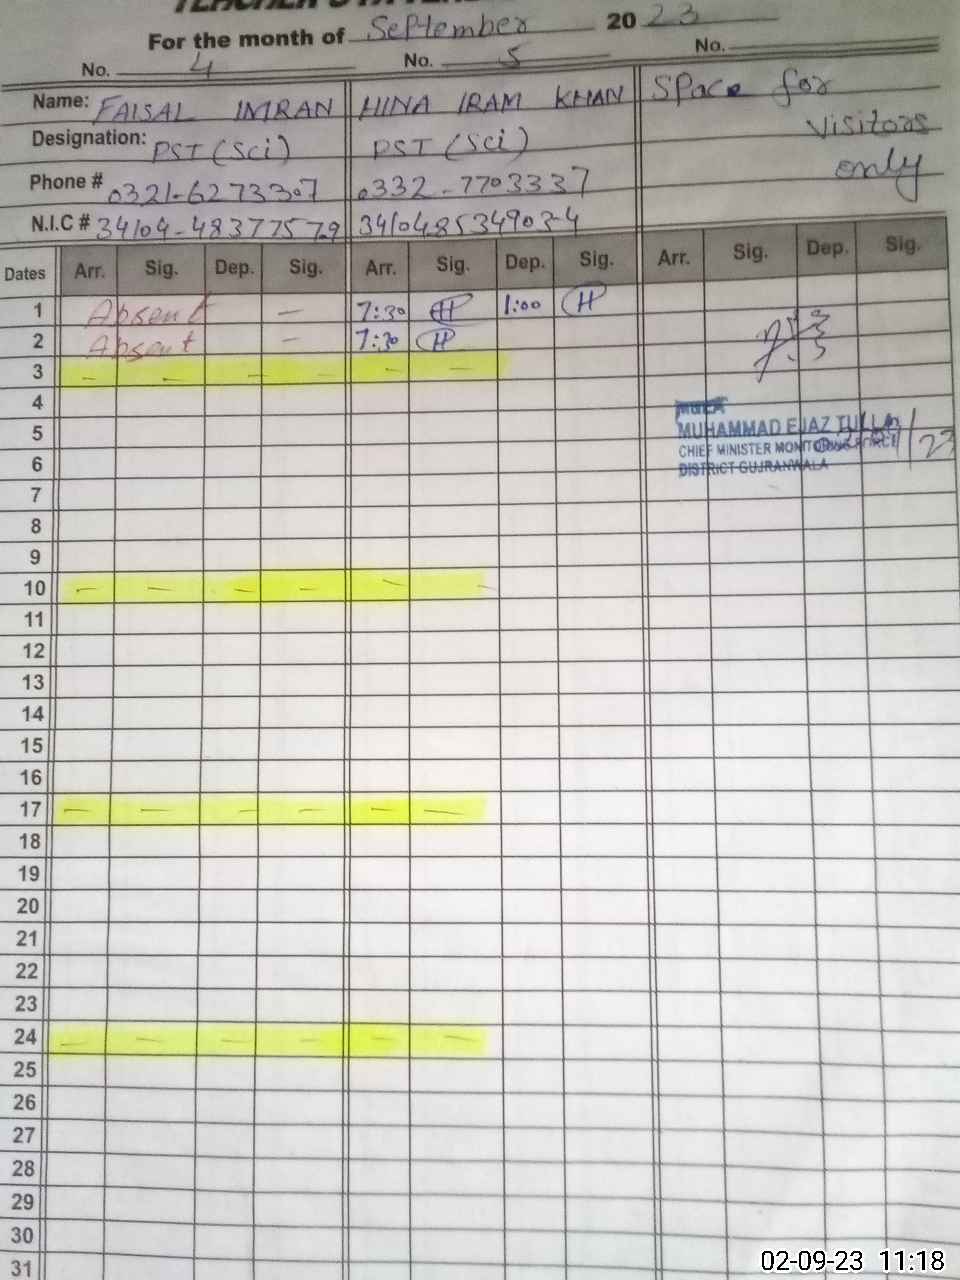 For the month of September 2023
No. 4 No. 5 No.
Name: FAISAL IMRAN HINA IRAM KHAN Space for
Designation: PST (Sci) PST (Sci) visitors
only
Phone # 0321-6273307 0332-7703337
N.I.C # 34104-4837757-9 341048534903-4
Dates Arr. Sig. Dep. Sig. Arr. Sig. Dep. Sig. Arr. Sig. Dep. Sig.
1 Absent — 7:30 H 1:00 H
2 Absent — 7:30 H
3 — — — — — —
4
5 MUHAMMAD EJAZ
CHIEF MINISTER
6 DISTRICT GUJRANWALA
7
8
9
10 — — — — — — —
11
12
13
14
15
16
17 — — — — — —
18
19
20
21
22
23
24 — — — — — —
25
26
27
28
29
30
31
02-09-23 11:18